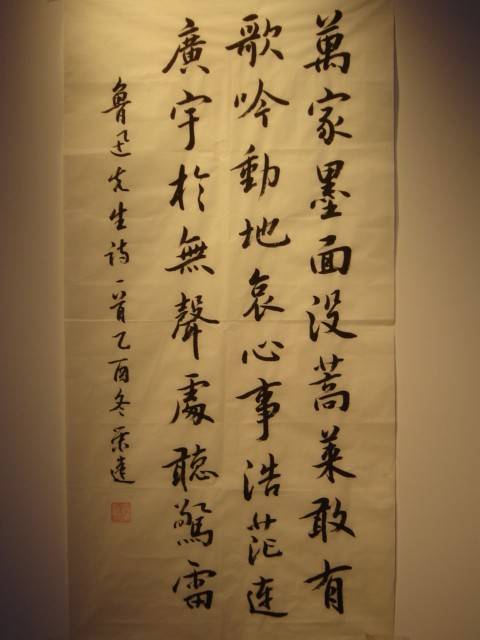 萬家墨面没蒿萊敢有
歌吟動地哀心事浩茫連
廣宇於無聲處聽驚雷
魯迅先生詩一首乙酉冬